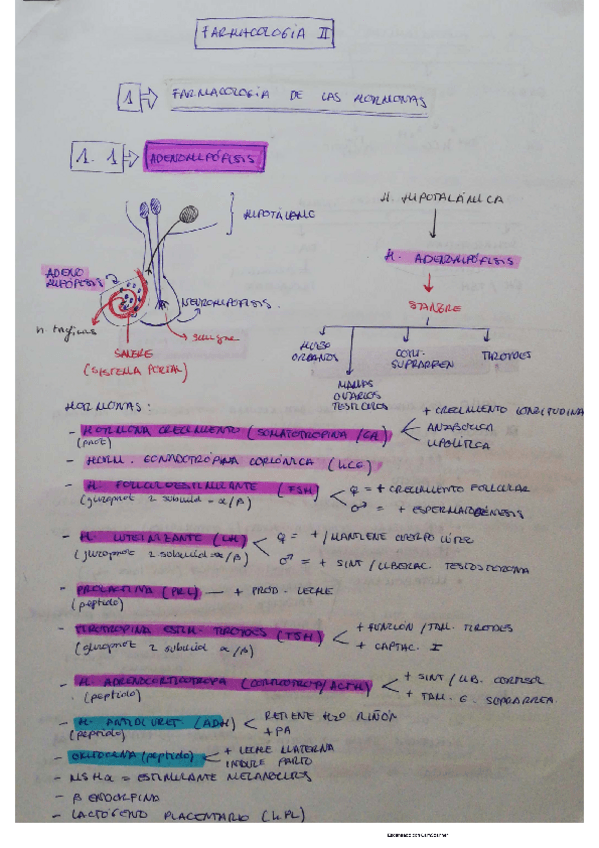 FARMACOLOGÍA II
1 ⇒ FARMACOLOGÍA DE LAS HORMONAS
1.1 ⇒ ADENOHIPÓFISIS
HIPOTÁLAMO
ADENO HIPÓFISIS
NEUROHIPÓFISIS.
SANGRE
SANGRE
(SISTEMA PORTAL)
H. HIPOTALÁMICA
H. ADENOHIPÓFISIS
SANGRE
HUESO
ÓRGANOS
MAMAS
OVARIOS
TESTÍCULOS
CORT.
SUPRARREN
TIROIDES
HORMONAS:
- HORMONA CRECIMIENTO (SOMATOTROPINA/GH)
+ CRECIMIENTO LONGITUDINA
ANABÓLICA
LIPOLÍTICA
- HORM. GONADOTRÓPINA CORIÓNICA (hCG)
- H. FOLICULOESTIMULANTE (FSH)
(glucoprot 2 subunid = α/β)
♀ = + CRECIMIENTO FOLICULAR
♂ = + ESPERMATOGÉNESIS
- H. LUTEINIZANTE (LH)
(glucoprot 2 subunid = α/β)
♀ = + /MANTIENE CUERPO LÚTEO
♂ = + SINT/LIBERAC. TESTOSTERONA
- PROLACTINA (PRL) — + PROD. LECHE
(peptido)
- TIROTROPINA ESTIM. TIROIDES (TSH)
(glucoprot 2 subunid α/β)
+ FUNCIÓN /TAM. TIROIDES
+ CAPTAC. I
- H. ADRENOCORTICOTROPA (CORTICOTROP/ACTH)
(peptido)
+ SINT/LIB. CORTISOL
+ TAM. G. SUPRARREA.
- H. ANTIDIURET. (ADH)
(peptido)
RETIENE H2O RIÑÓN
+ PA
- OXITOCINA (peptido)
+ LECHE MATERNA
INDUCE PARTO
- MSHα = ESTIMULANTE MELANOCITOS
- β ENDORFINA
- LACTÓGENO PLACENTARIO (hPL)
Escaneado con CamScanner